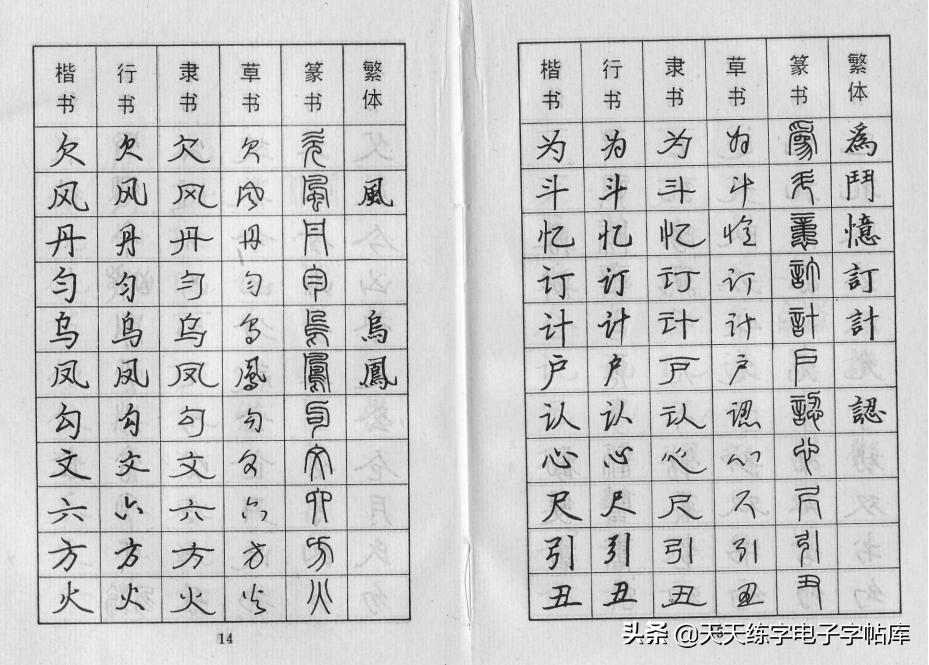 楷书 行书 隶书 草书 篆书 繁体
欠 欠 欠 欠 欠
风 风 风 风 風 風
丹 丹 丹 丹 丹
匀 匀 匀 匀 匀
乌 乌 乌 乌 烏 烏
凤 凤 凤 鳳 鳳 鳳
勾 勾 勾 勾 勾
文 文 文 文 文
六 六 六 六 六
方 方 方 方 方
火 火 火 火 火
14
楷书 行书 隶书 草书 篆书 繁体
为 为 为 为 爲 爲
斗 斗 斗 斗 斗 鬥
忆 忆 忆 憶 憶 憶
订 订 订 订 訂 訂
计 计 计 计 計 計
户 户 户 户 户
认 认 认 認 認 認
心 心 心 心 心
尺 尺 尺 尺 尺
引 引 引 引 引
丑 丑 丑 丑 丑
头条 @天天练字电子字帖库